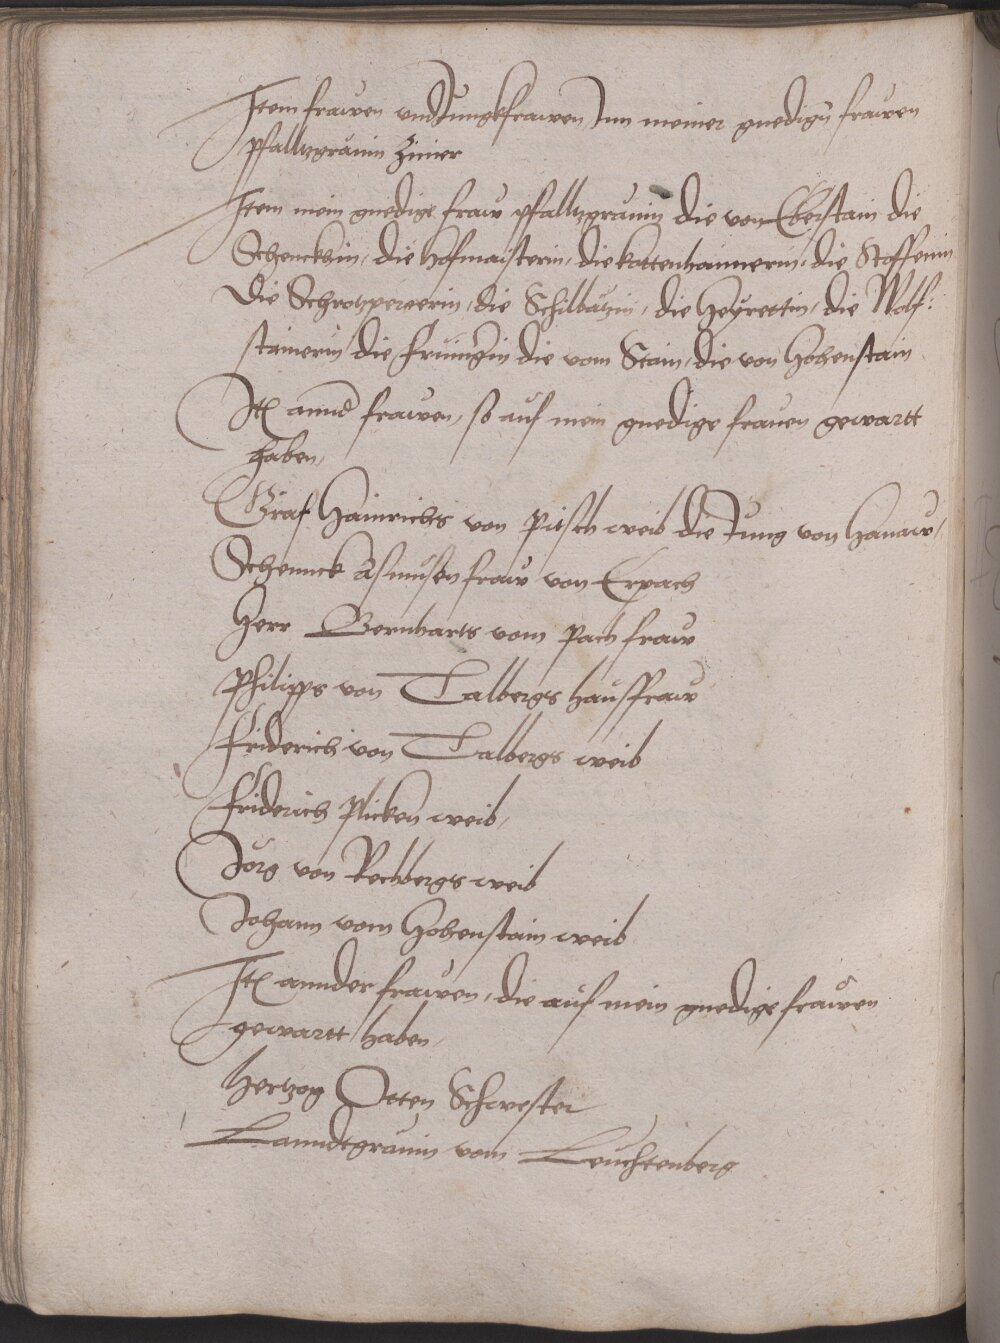 Item frawen und Jungkfrawen Jnn meiner gnedigen frawen
pfalltzgräuin Zimer
Item mein gnedige fraw pfalltzgräuin die von Eberstain die
Schenckhin, die Hofmaisterin, die kottenhaimerin, die Stoffenin
Die Schrotzpergerin, die Schilbatzin, die Heyrettin, die Wolf:
stainerin die die vom Stain, die von Hohenstain
Jt annd frawen, so auf mein gnedige frauen gewartt
haben,
Graf Hainrichs von Pitsch weib die Jung von Hanaw,
Schennck Asmusen fraw von Erpach
Herr Bernharts vom Pach fraw
Philipps von Talbergs hausfraw
Friderich von Talbergs weib
Friderich Plicken weib,
Jorg von Rechbergs weib
Johann vom Hohenstain weib
Jt annder frawen, die auf mein gnedige frawen
gewartt haben,
Hertzog Otten Schwester
Lanndtgräuin vom Leuchtenberg